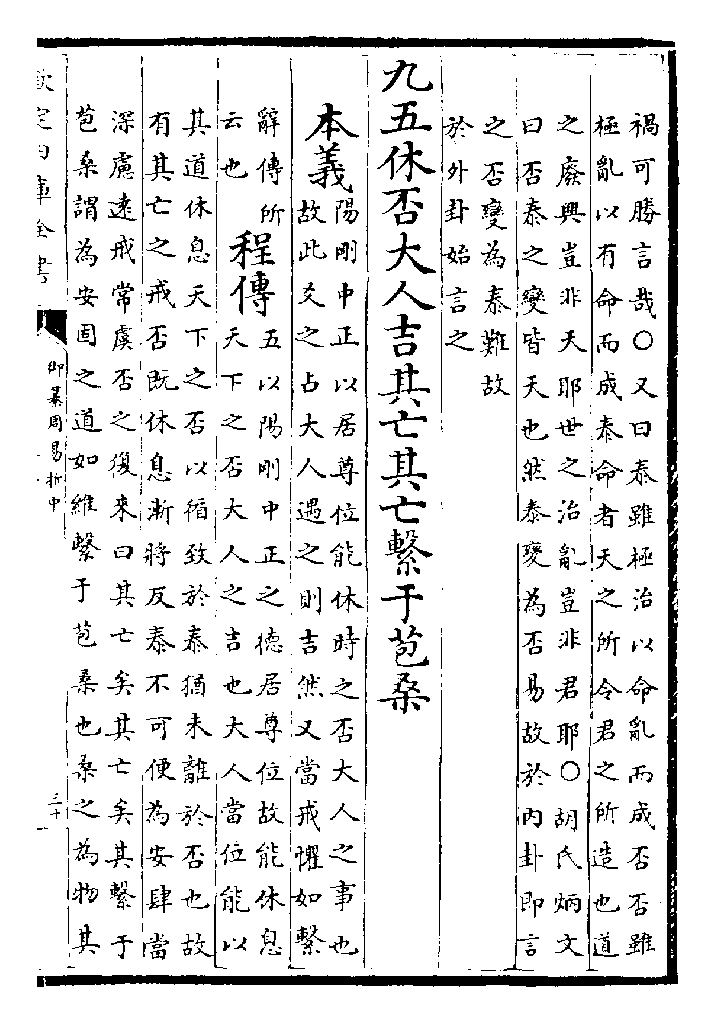 禍可勝言哉○又曰泰雖極治以命亂而成否否雖
極亂以有命而成泰命者天之所令君之所造也道
之廢興豈非天耶世之治亂豈非君耶○胡氏炳文
曰否泰之變皆天也然泰變為否易故於內卦即言
之否變為泰難故
於外卦始言之
九五休否大人吉其亡其亡繫于苞桑
本義陽剛中正以居尊位能休時之否大人之事也
故此爻之占大人遇之則吉然又當戒懼如繫
辭傳所
云也
程傳五以陽剛中正之德居尊位故能休息
天下之否大人之吉也大人當位能以
其道休息天下之否以循致於泰猶未離於否也故
有其亡之戒否既休息漸將反泰不可便為安肆當
深慮遠戒常虞否之復來曰其亡矣其亡矣其繫于
苞桑謂為安固之道如維繫于苞桑也桑之為物其
欽定四庫全書
御纂周易折中
三十